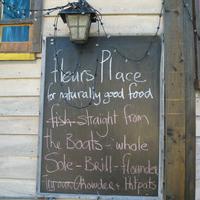 fleurs Place
for naturally good food
fish straight from
the Boats - whole
Sole - Brill - flounder
Chowder + Hotpots